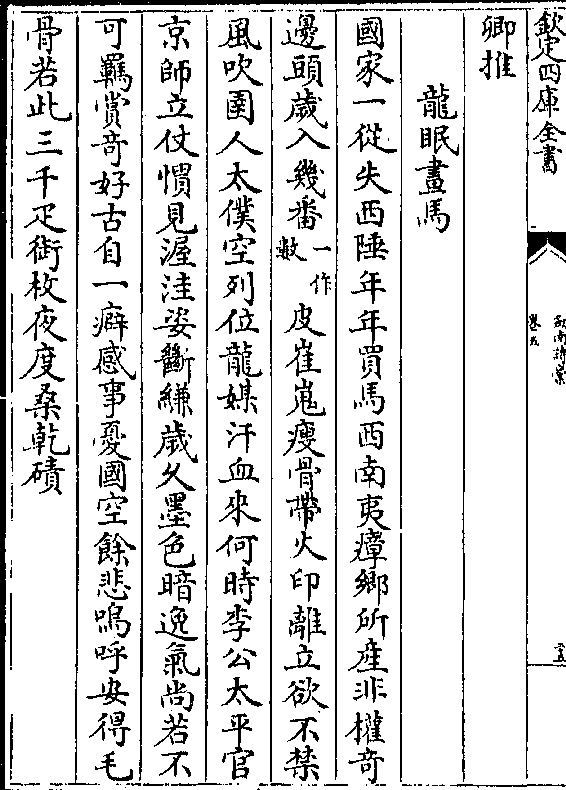 欽定四庫全書
劔南詩稾
卷五
卿推
龍眠畫馬
國家一從失西陲年年買馬西南夷瘴鄉所産非權竒
邊頭歲入幾番一作數皮崔嵬瘦骨帶火印離立欲不禁
風吹圉人太僕空列位龍媒汗血來何時李公太平官
京師立仗慣見渥洼姿斷縑歲久墨色暗逸氣尚若不
可羈賞竒好古自一癖感事憂國空餘悲嗚呼安得毛
骨若此三千疋銜枚夜度桑乾磧